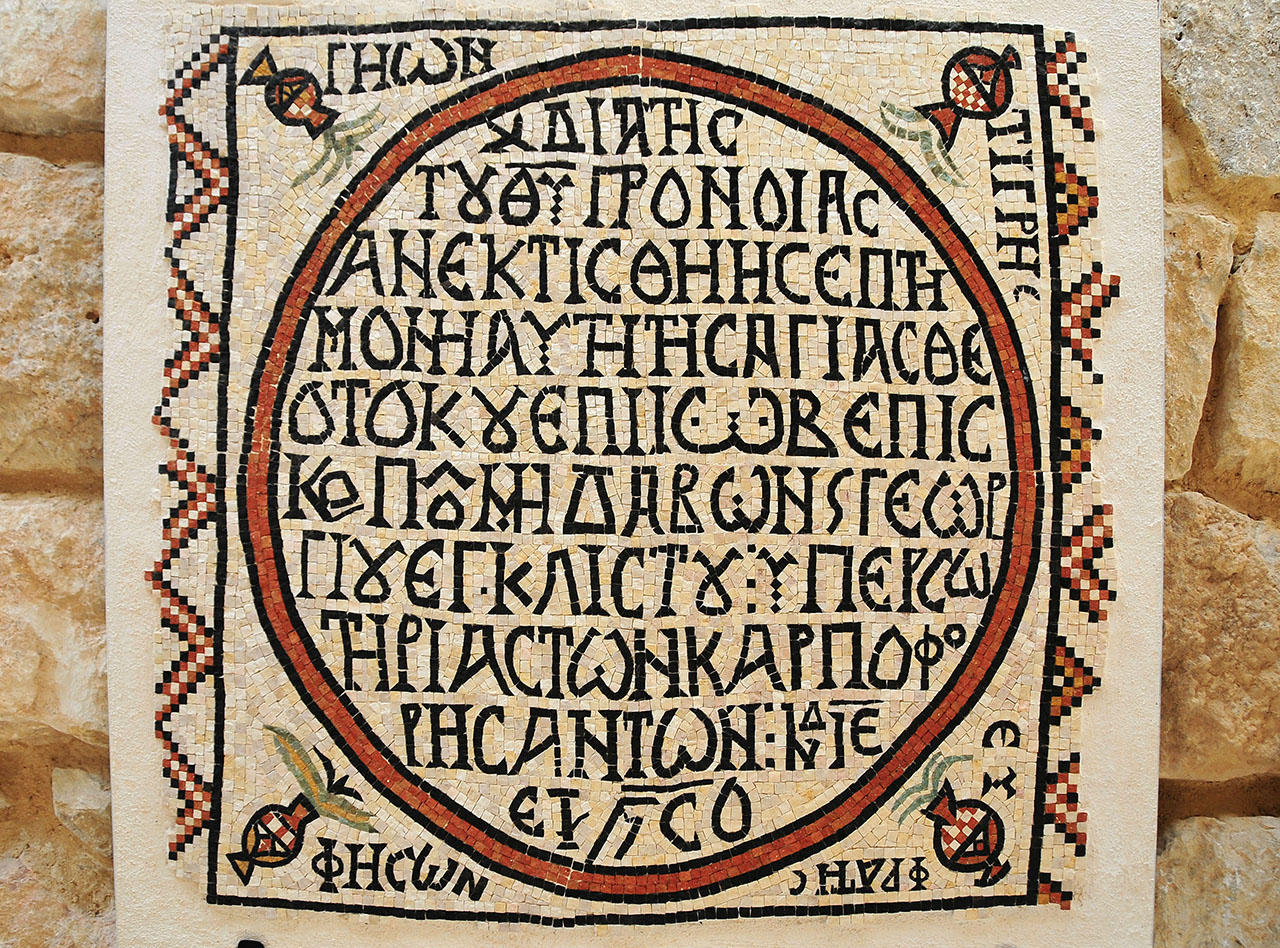 ΓΗΩΝ
ΤΙΓΡΗϹ
ΧΔΙΑΤΗϹ
ΤȢΘΥΠΡΟΝΟΙΑϹ
ΑΝΕΚΤΙϹΘΗΗϹΕΠΤΗ
ΜΟΝΗΑΥΤΗΤΗϹΑΓΙΑϹΘΕ
ΟΤΟΚȢΕΠΙΙϹ·ΩΒΕΠΙϹ
ΚΟΠȢΜΗΔΑΒΩΝSΓΕΩΡ
ΓΙȢΕΓ·ΚΛΙϹΤȢ:ΥΠΕΡϹΩ
ΤΗΡΙΑϹΤΩΝΚΑΡΠΟΦΟ
ΡΗϹΑΝΤΩΝ:ΙΝΔΙΕ
ΕΤ ϚϹΟ
ΦΗϹΩΝ
ΕΥ
ΦΡΑΤΗϹ